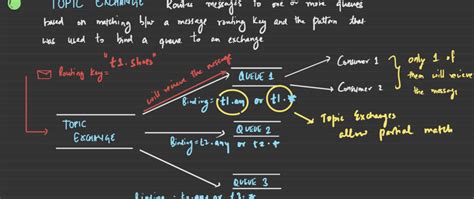 TOPIC EXCHANGE Routes messages to one or more queues
based on matching b/w a message routing key and the pattern that
was used to bind a queue to an exchange
Routing key= "t1.shoes"
will recieve the message
QUEUE 1
Consumer 1
Consumer 2
only 1 of
them will recieve
the message
Binding=t1.any or t1.*
TOPIC
EXCHANGE
Topic Exchanges
allow partial match
QUEUE 2
Binding=t2.any or t2.*
QUEUE 3
Binding = t3.any or t3.*